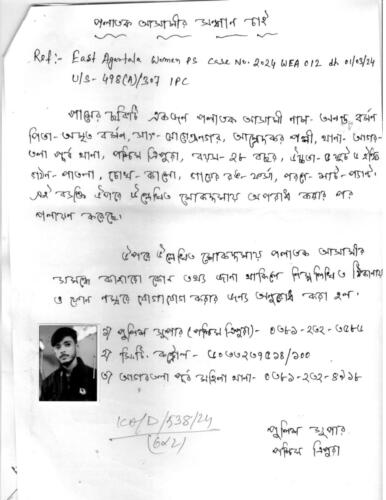 পলাতক আসামীর সন্ধান চাই
Ref:- East Agartala Women PS Case No. 2024 WEA 012 dt 01/03/24
U/S- 498(A)/307 IPC
পাশের ছবিটি একজন পলাতক আসামী নাম- বর্মন
পিতা- অমৃত বর্মন, সাং- যোগেন্দ্রনগর, পল্লী, থানা- আগর-
তলা পূর্ব থানা, পশ্চিম ত্রিপুরা, বয়স- ২৮ বছর, উচ্চতা- ৫ ফুট ৫ ইঞ্চি
গঠন- পাতলা, চোখ- কালো, গায়ের রঙ- ফর্সা, পরনে- সার্ট-প্যান্ট।
এই ব্যক্তি উপরে উল্লেখিত মোকদ্দমায় অপরাধ করার পর
পলায়ন করেছে।
উপরে উল্লেখিত মোকদ্দমায় পলাতক আসামীর
সম্বন্ধে কাহারো কোন তথ্য জানা থাকিলে নিম্নলিখিত ঠিকানায়
ও ফোন নম্বরে যোগাযোগ করার জন্য অনুরোধ করা হল।
১) পুলিশ সুপার (পশ্চিম ত্রিপুরা)- ০৩৮১-২৩২-৩৫৮৫
২) সিটি কন্ট্রোল- /১০০
৩) আগরতলা পূর্ব মহিলা থানা- ০৩৮১-২৩২-
ICA/D/538/24
পুলিশ সুপার
পশ্চিম ত্রিপুরা